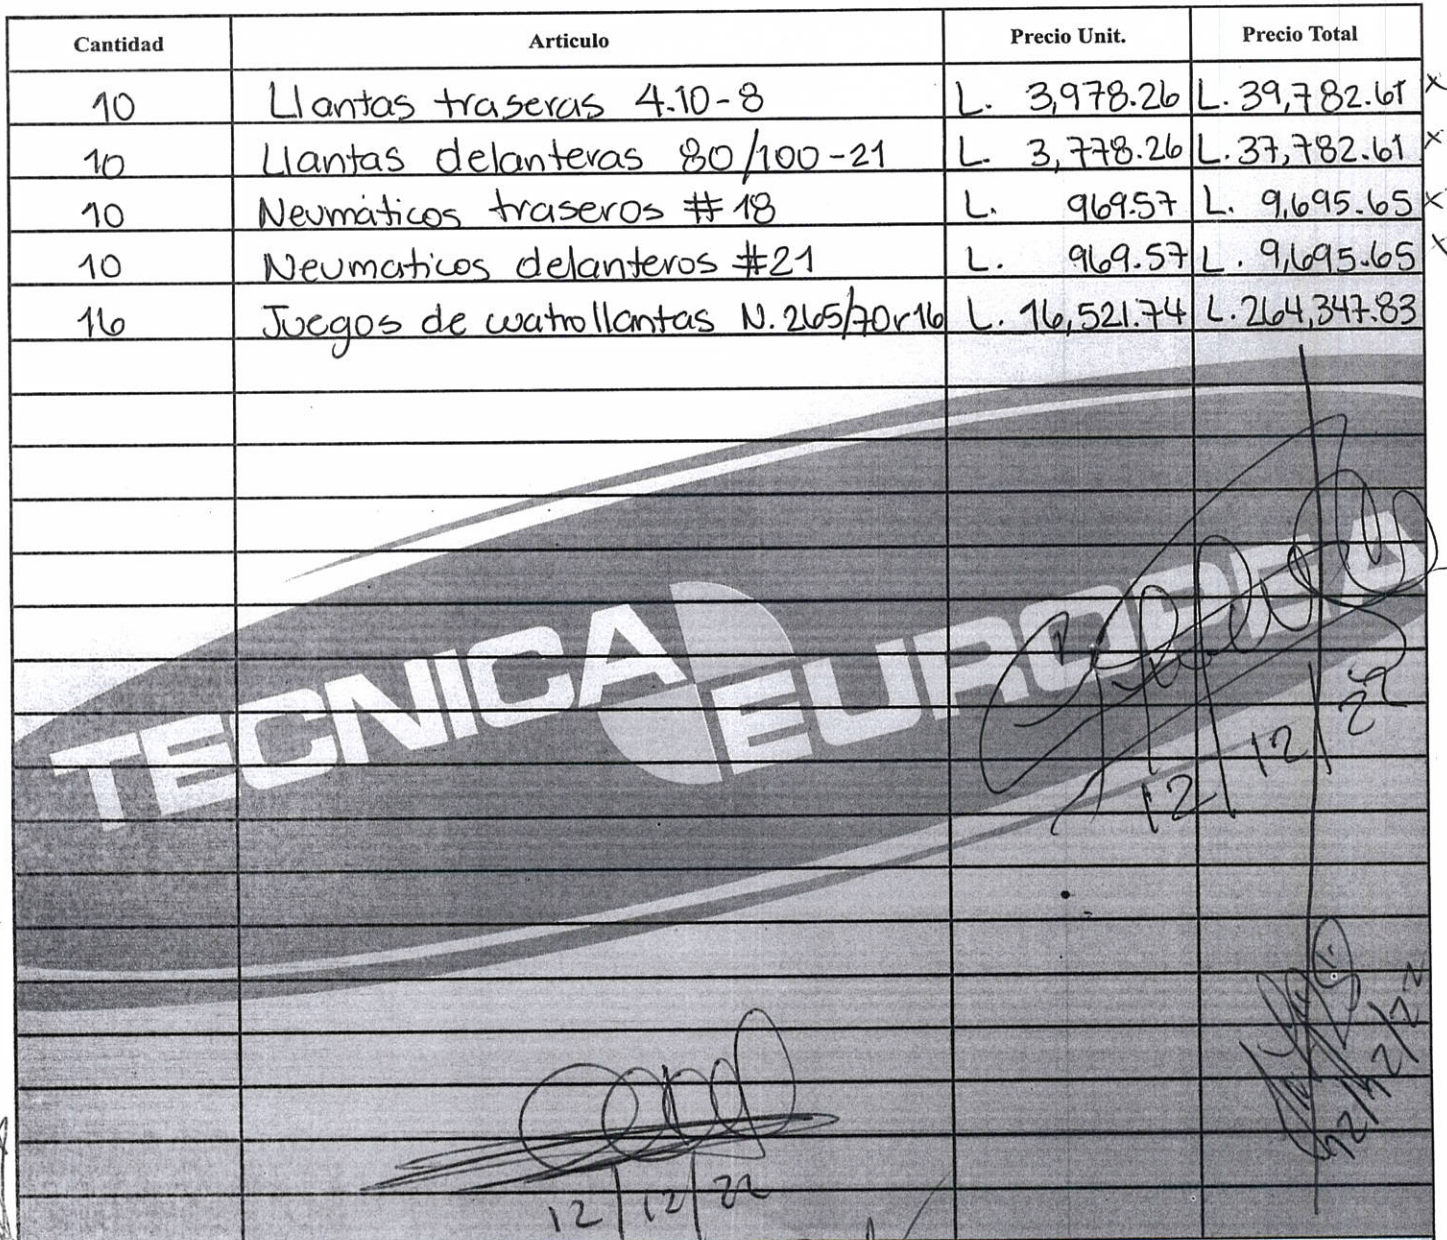 Cantidad Articulo Precio Unit. Precio Total
10 Llantas traseras 4.10-8 L. 3,978.26 L. 39,782.61 x
10 Llantas delanteras 80/100-21 L. 3,778.26 L. 37,782.61 x
10 Neumáticos traseros #18 L. 969.57 L. 9,695.65 x
10 Neumaticos delanteros #21 L. 969.57 L. 9,695.65 x
16 Juegos de cuatro llantas N. 265/70r16 L. 16,521.74 L. 264,347.83
TECNICA EUROPEA
12/12/22
12/12/22
12/12/22